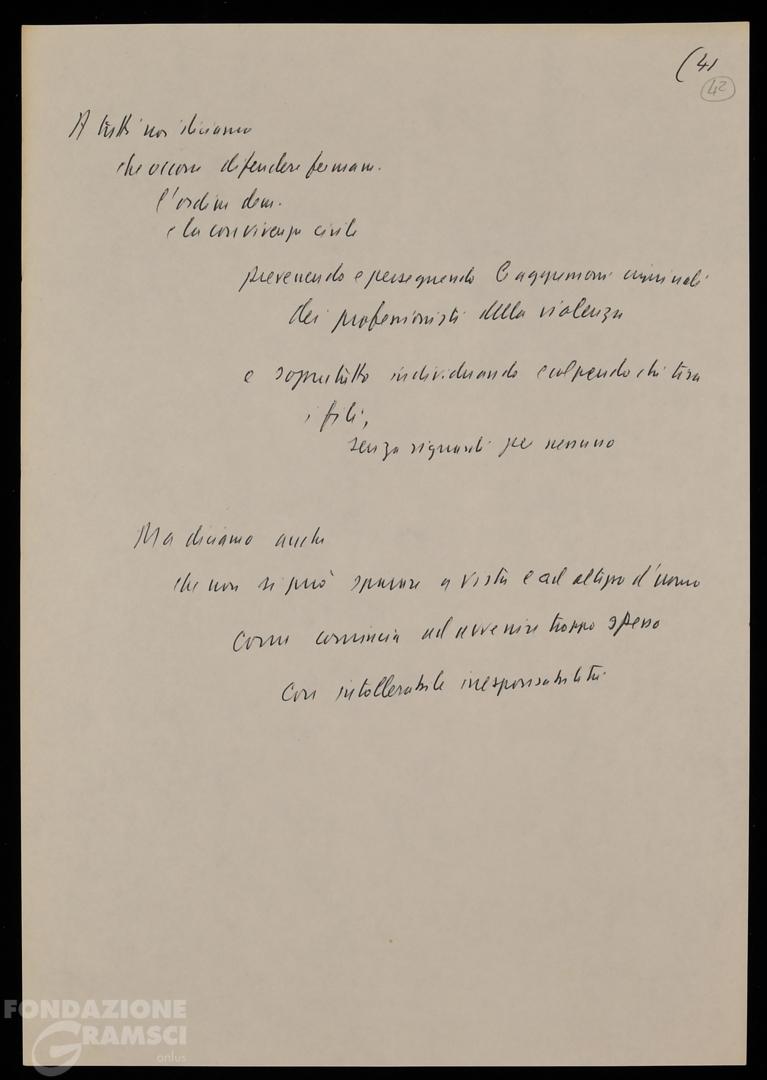 (41
42
A tutti noi diciamo
che occorre difendere fermam.
l'ordine dem.
e la convivenza civile
prevenendo e perseguendo le aggressioni criminali
dei professionisti della violenza
e soprattutto individuando e colpendo chi tira
i fili,
senza riguardi per nessuno
Ma diciamo anche
che non si può sparare a vista e ad altezza d'uomo
come comincia ad avvenire troppo spesso
con intollerabile irresponsabilità
FONDAZIONE
GRAMSCI
onlus